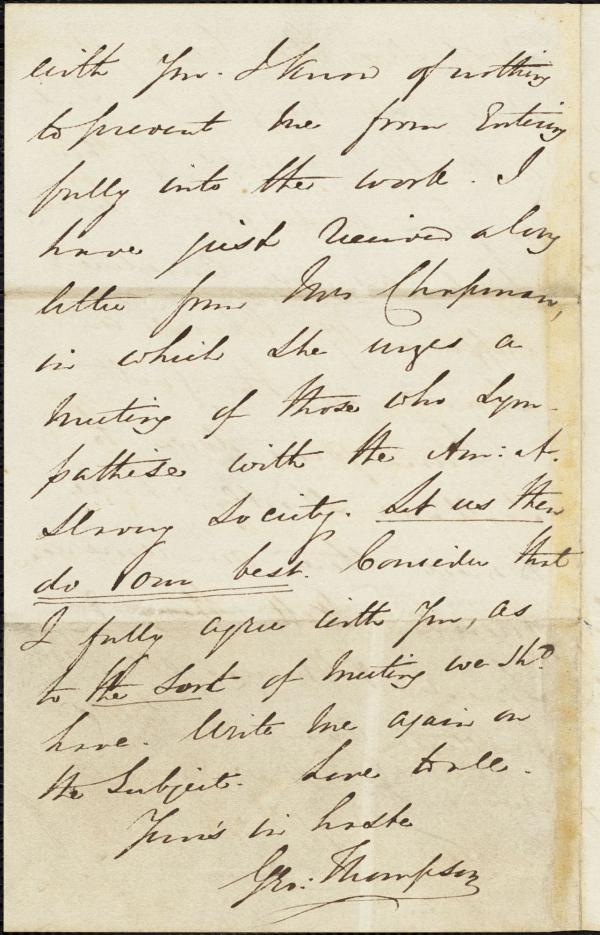 with you. I know of nothing
to prevent me from entering
fully into the work. I
have just received a long
letter from Mrs Chapman,
in which she urges a
meeting of those who sym-
pathise with the Am: A.
Slavery Society. Let us then
do our best. Consider that
I fully agree with you, as
to the sort of meeting we shd.
have. Write me again on
the subject. Love to all.
Your's in haste
Geo: Thompson